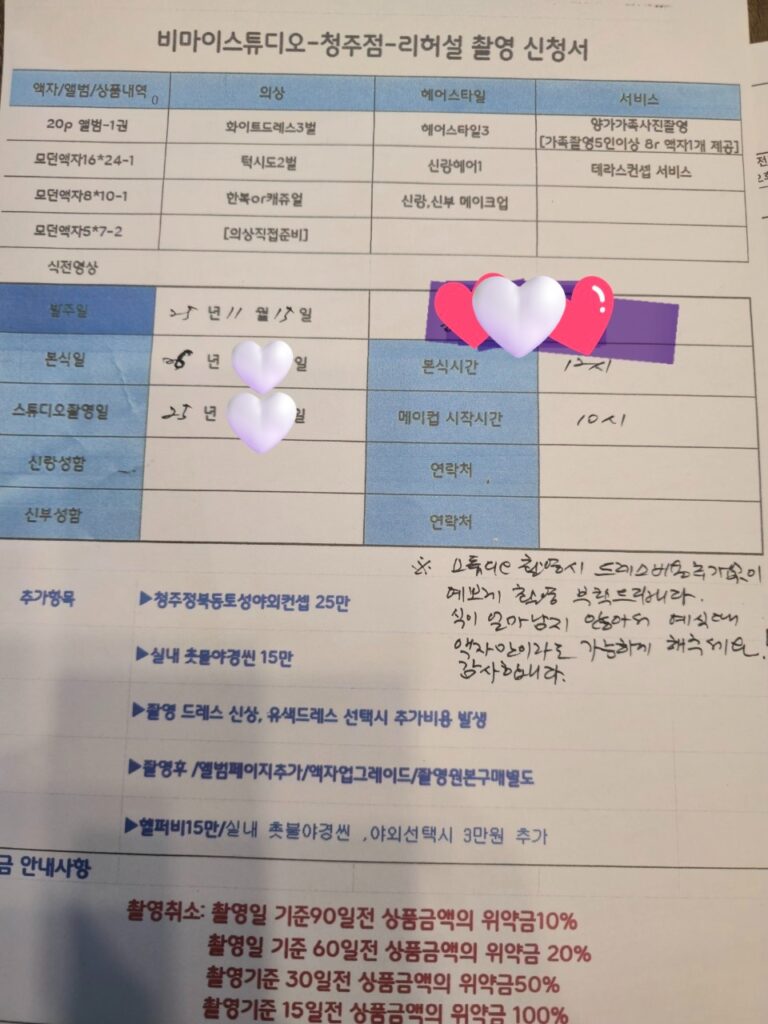 비마이스튜디오-청주점-리허설 촬영 신청서
액자/앨범/상품내역 의상 헤어스타일 서비스
20p 앨범-1권 화이트드레스3벌 헤어스타일3 양가가족사진촬영
[가족촬영5인이상 8r 액자1개 제공]
모던액자16*24-1 턱시도2벌 신랑헤어1 테라스컨셉 서비스
모던액자8*10-1 한복or캐쥬얼 신랑,신부 메이크업
모던액자5*7-2 [의상직접준비]
식전영상
발주일 25 년 11 월 15 일
본식일 26 년 일 본식시간 12시
스튜디오촬영일 25 년 일 메이컵 시작시간 10시
신랑성함 연락처
신부성함 연락처
※ 스튜디오 촬영시 드레스비용추가없이
예쁘게 촬영 부탁드립니다.
식이 얼마남지 않아서 예식때
액자만이라도 가능하게 해주세요!
감사합니다.
추가항목 ▶청주정북동토성야외컨셉 25만
▶실내 촛불야경씬 15만
▶촬영 드레스 신상, 유색드레스 선택시 추가비용 발생
▶촬영후 /앨범페이지추가/액자업그레이드/촬영원본구매별도
▶헬퍼비15만/실내 촛불야경씬 ,야외선택시 3만원 추가
금 안내사항
촬영취소: 촬영일 기준90일전 상품금액의 위약금10%
촬영일 기준 60일전 상품금액의 위약금 20%
촬영기준 30일전 상품금액의 위약금50%
촬영기준 15일전 상품금액의 위약금 100%